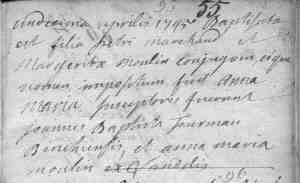 55
undecima aprilis 1795 Baptisata
est filia petri marchand et
Margarita moulin conjugum cique
nomen impositum fuit anna
maria susceptores fuerunt
joannes Baptista
et anna maria
moulin ex